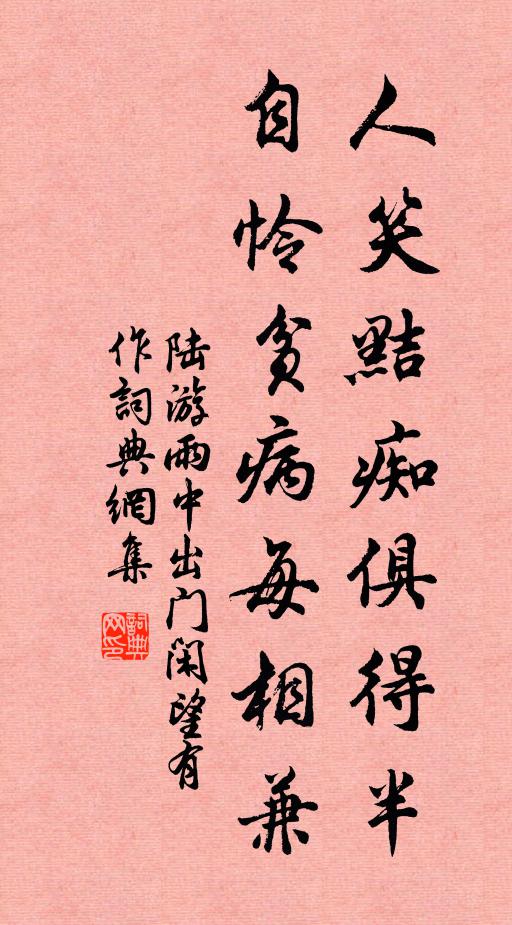 人笑點痴俱得半
自怜貧病每相兼
陆游雨中出门闲望有
作詞典網集
詞典
网印